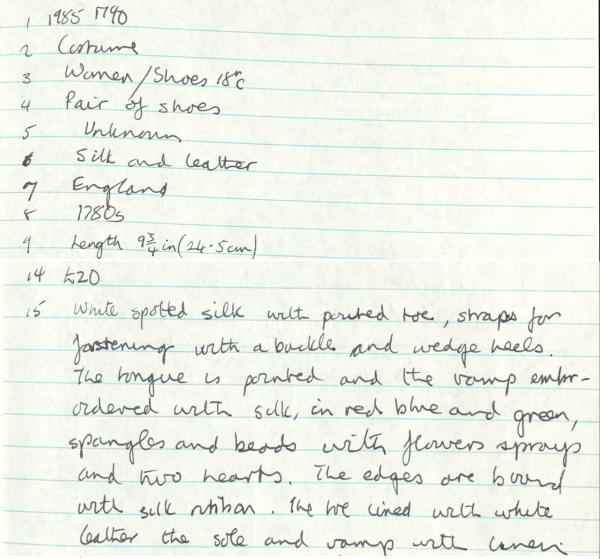 1 1985 1790
2 Costume
3 Women/Shoes 18thc
4 Pair of shoes
5 Unknown
6 Silk and leather
7 England
8 1780s
9 Length 9 3/4 in (24.5cm)
14 £20
15 White spotted silk with pointed toe, straps for
fastening with a buckle and wedge heels.
The tongue is pointed and the vamp embr-
oidered with silk, in red blue and green,
spangles and beads with flowers sprays
and two hearts. The edges are bound
with silk ribbon. The toe lined with white
leather the sole and vamp with linen